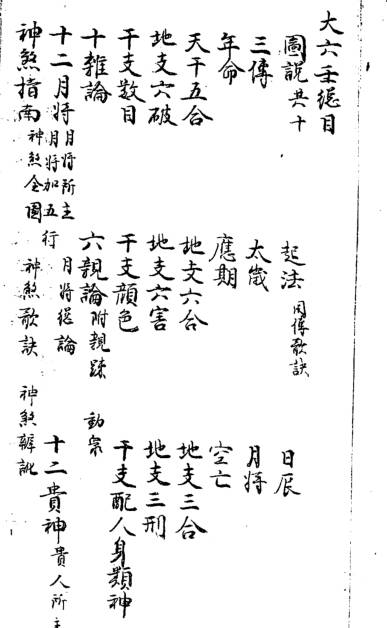 大六壬總目
圖說共十 起法因傳歌訣 日辰
三傳 太歲 月將
年命 應期 空亡
天干五合 地支六合 地支三合
地支六破 地支六害 地支三刑
干支數目 干支顔色 干支配人身類神
十雜論 六親論附親疎 動象
十二月將月將所主 月將加五行 月將總論 十二貴神貴人所主
神煞指南 神煞全圖 神煞歌訣 神煞辨訛